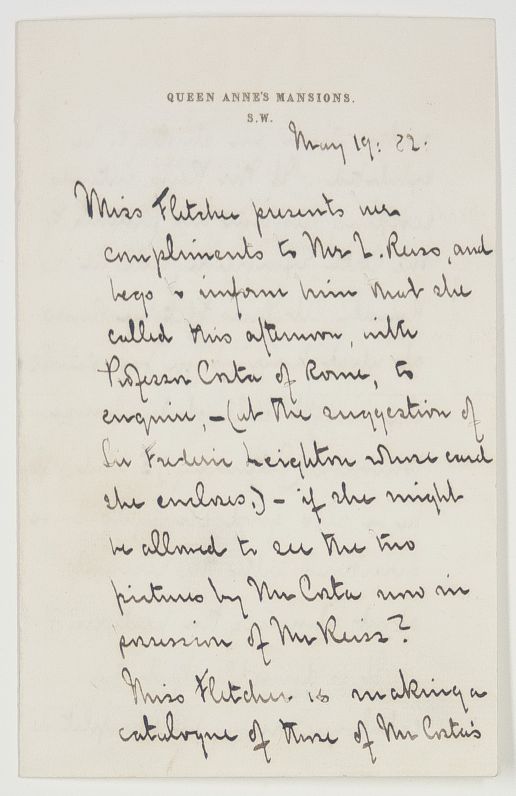 QUEEN ANNE'S MANSIONS.
S.W.
May 19: 82.
Miss Fletcher presents her
compliments to Mr L. Reiss, and
begs to inform him that she
called this afternoon, with
Professor Costa of Rome, to
enquire, – (at the suggestion of
Sir Frederic Leighton whose card
she encloses,) – if she might
be allowed to see the two
pictures by Mr Costa now in
possession of Mr Reiss?
Miss Fletcher is making a
catalogue of those of Mr Costa's